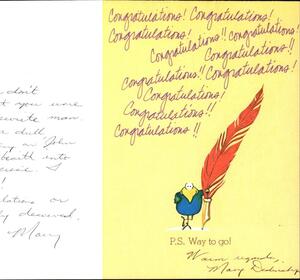 don't
t you were
secrete man
r dull,
ay on John
breath into
I
!
lations on
ly deserved.
Mary
Congratulations! Congratulations!
Congratulations! Congratulations!
Congratulations!! Congratulations!!
Congratulations!!
Congratulations!! Congratulations!
Congratulations!
Congratulations!!
Congratulations!!
P.S. Way to go!
Warm regards,
Mary